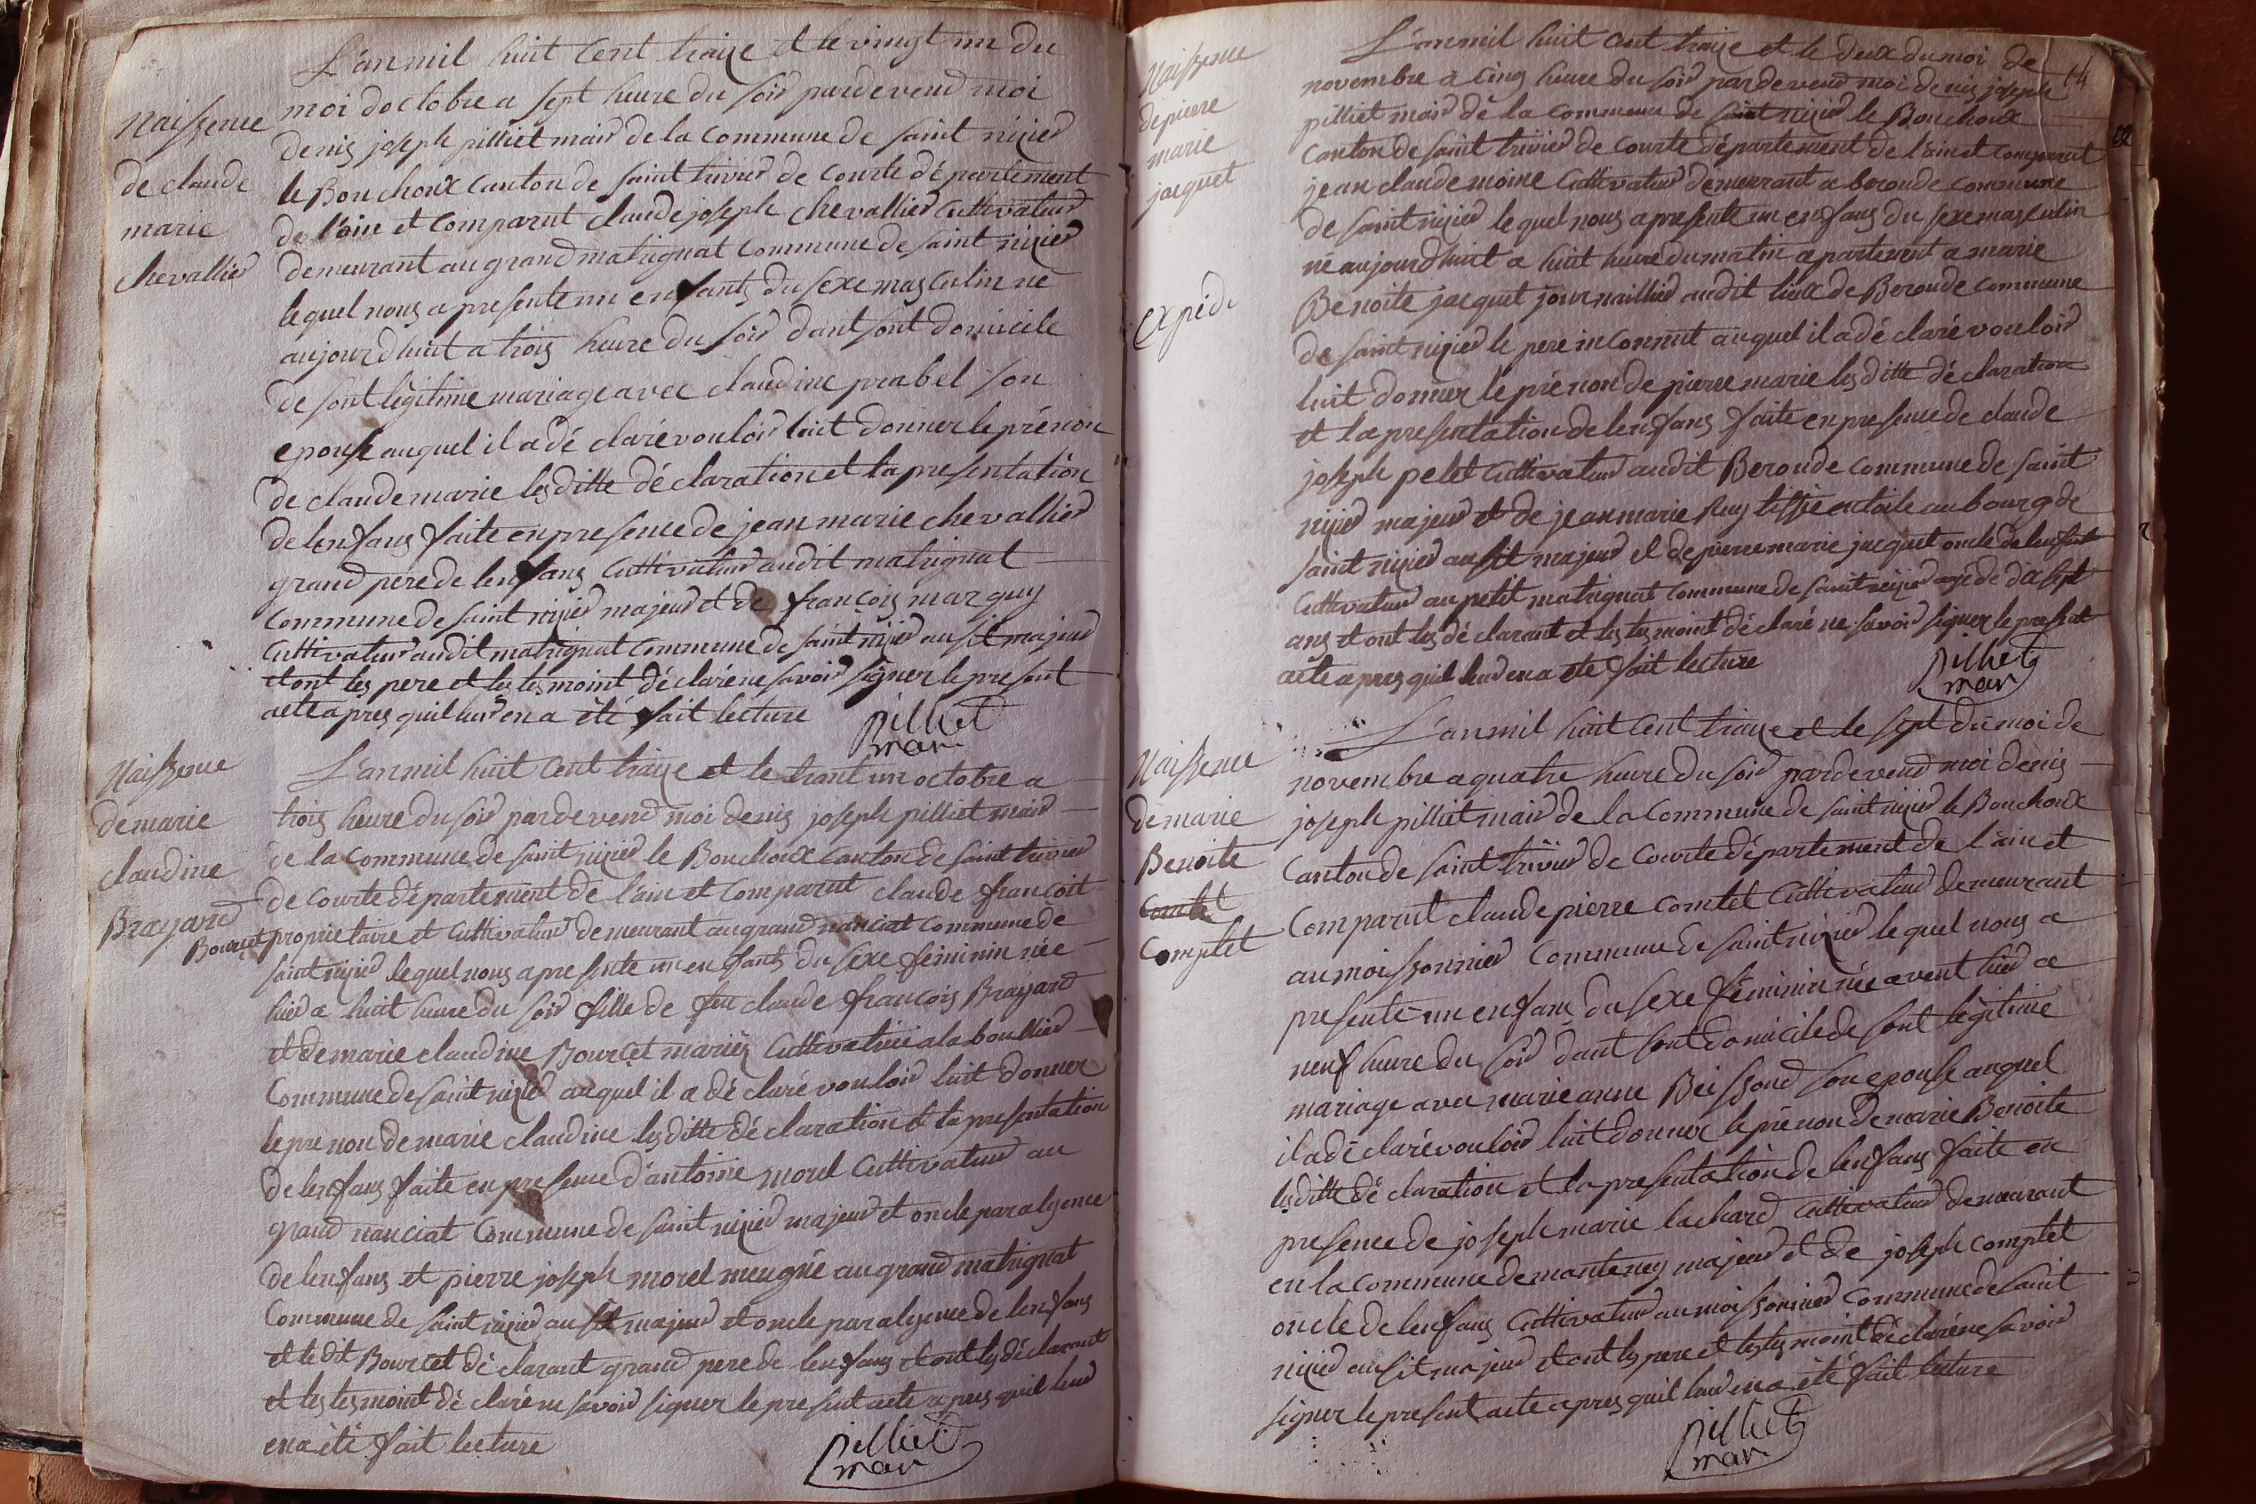 L'an mil huit Cent traize et le vingt un du
Naissence
de claude
marie
chevallier
moi doctobre a sept heure du soir pardevend moi
denis joseph pilliet mair de la Commune de saint nizier
le Bouchoux Canton de saint trivier de Courte département
de l'ain et Comparut claude joseph chevallier Cuttivateur
demeurant au grand matrignat Commune de saint nizier
lequel nous a presente un enfants du sexe masculin ne
aujourdhuit a trois heure du soir dant sont domicile
de sont légitime mariage avec claudine prabel son
epouse auquel il a dé claré vouloir luit donner le prénon
de claude marie lesditte dé claration et la presentation
de lenfans faite en presence de jean marie chevallier
grand pere de lenfans Cuttivateur audit matrignat
Commune de saint nizier majeur et de françois marguy
Cuttivateur audit matrignat Commune de saint nizier ausit majeur
et ont les pere et les tesmoint dé claré ne savoir signer le present
acte apres quil leur en a été fait lecture
Pilliet
mair
Naissence
de marie
claudine
Brayard
L'an mil huit Cent traize et le trant un octobre a
trois heure du soir pardevend moi denis joseph pilliet mair
de la Commune de saint nizier le Bouchoux Canton de saint trivier
de Courte département de l'ain et Comparut claude françoit
Bourcet proprietaire et Cuttivateur demeurant au grand nanciat Commune de
saint nizier lequel nous a presente un enfants du sexe féminin née
hier a huit heure du soir fille de feu claude françois Brayard
et de marie claudine Bourcet mariés Cuttivatrice a la boullier
Commune de saint nizier auquel il a dé claré vouloir luit donner
le prenon de marie claudine lesditte dé claration et la presentation
de lenfans faite en presence d'antoine morel Cuttivateur au
grand nanciat Commune de saint nizier majeur et oncle par alyence
de lenfans et pierre joseph morel meugnié au grand matrignat
Commune de saint nizier ausit majeur et oncle par alyence de lenfans
et ledit Bourcet dé clarant grand pere de lenfans et ont les déclarant
et les tesmoint dé claré ne savoir signer le present acte apres quil leur
en a été fait lecture
Pilliet
mair
14
Naissence
de pierre
marie
jacquet
expédi
L'an mil huit Cent traize et le deux du moi de
novembre a Cinq heure du soir pardevend moi denis joseph
pilliet mair de la Commune de saint nizier le Bouchoux
Canton de saint trivier de Courte département de l'ain et Comparut
jean claude moine Cuttivateur demeurant a beronde Commune
de saint nizier lequel nous a presente un enfans du sexe masculin
né aujourdhuit a huit heure du matin apartenent a marie
Benoite jacquet journaillier audit lieux de Beronde Commune
de saint nizier le pere inconnut auquel il a dé claré vouloir
luit donner le prénon de pierre marie lesditte dé claration
et la presentation de lenfans faite en presence de claude
joseph pelet Cuttivateur audit Beronde Commune de saint
nizier majeur et de jean marie Ruy tissie en toile au bourg de
saint nizier ausit majeur et de pierre marie jacquet oncle de lenfant
Cuttivateur au petit matrignat Commune de saint nizier agé de dix sept
ans et ont les dé clarant et les tesmoint dé claré ne savoir signer le present
acte apres quil leur en a été fait lecture
Pilliet
mair
Naissence
de marie
Benoite
Comtet
Comptet
L'an mil huit Cent traize et le sept du moi de
novembre a quatre heure du soir pardevend moi denis
joseph pilliet mair de la Commune de saint nizier le Bouchoux
Canton de saint trivier de Courte département de l'ain et
Comparut claude pierre Comtet Cuttivateur demeurant
au moissonnier Commune de saint nizier lequel nous a
presente un enfans du sexe féminin née avent hier a
neuf heure du soir dant sont domicile de sont légitime
mariage avec marie anne Beissond son epouse auquel
il a dé claré vouloir luit donner le prénon de marie Benoite
lesditte dé claration et la presentation de lenfans faite en
presence de joseph marie lachard Cuttivateur demeurant
en la Commune de manteney majeur et de joseph Comptet
oncle de lenfans Cuttivateur au moissonnier Commune de saint
nizier ausit majeur et ont les pere et les tesmoint dé claré ne savoir
signer le present acte apres quil leur en a été fait lecture
Pilliet
mair